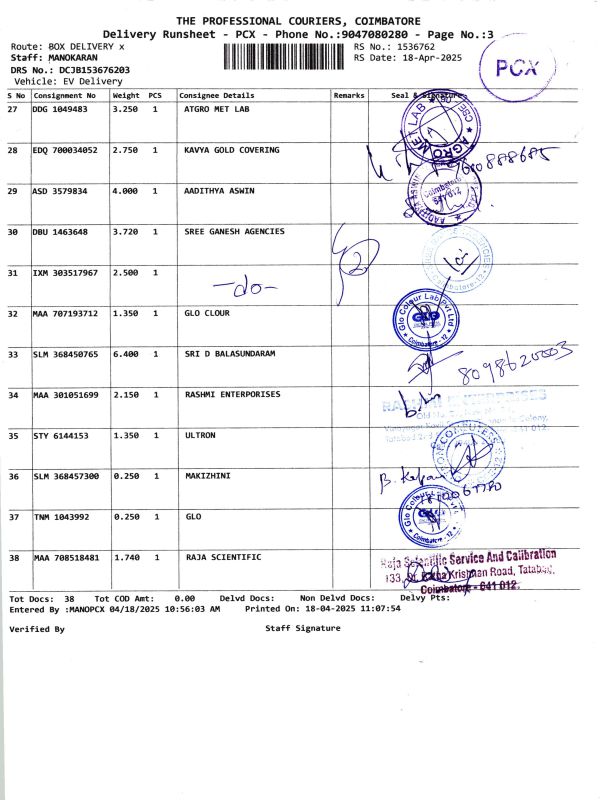 THE PROFESSIONAL COURIERS, COIMBATORE
Delivery Runsheet - PCX - Phone No.:9047080280 - Page No.:3
Route: BOX DELIVERY x
RS No.: 1536762
Staff: MANOKARAN
RS Date: 18-Apr-2025
DRS No.: DCJB153676203
Vehicle: EV Delivery
PCX
S No Consignment No Weight PCS Consignee Details Remarks Seal & Signature
27 DDG 1049483 3.250 1 ATGRO MET LAB
AGRO MET LAB CBE
28 EDQ 700034052 2.750 1 KAVYA GOLD COVERING
29 ASD 3579834 4.000 1 AADITHYA ASWIN
Coimbatore
641 012
30 DBU 1463648 3.720 1 SREE GANESH AGENCIES
Coimbatore-12
31 IXM 303517967 2.500 1
-do-
32 MAA 707193712 1.350 1 GLO CLOUR
Glo Colour Lab Pvt Ltd
GLO
Coimbatore - 12
33 SLM 368450765 6.400 1 SRI D BALASUNDARAM
8098620003
34 MAA 301051699 2.150 1 RASHMI ENTERPORISES
RASHMI ENTERPRISES
35 STY 6144153 1.350 1 ULTRON
COMPUTERS
36 SLM 368457300 0.250 1 MAKIZHINI
37 TNM 1043992 0.250 1 GLO
Glo Colour
GLO
Coimbatore - 12
38 MAA 708518481 1.740 1 RAJA SCIENTIFIC
Raja Scientific Service And Calibration
133, Krishnan Road, Tatabad,
Coimbatore - 641 012.
Tot Docs: 38 Tot COD Amt: 0.00 Delvd Docs: Non Delvd Docs: Delvy Pts:
Entered By :MANOPCX 04/18/2025 10:56:03 AM Printed On: 18-04-2025 11:07:54
Verified By Staff Signature